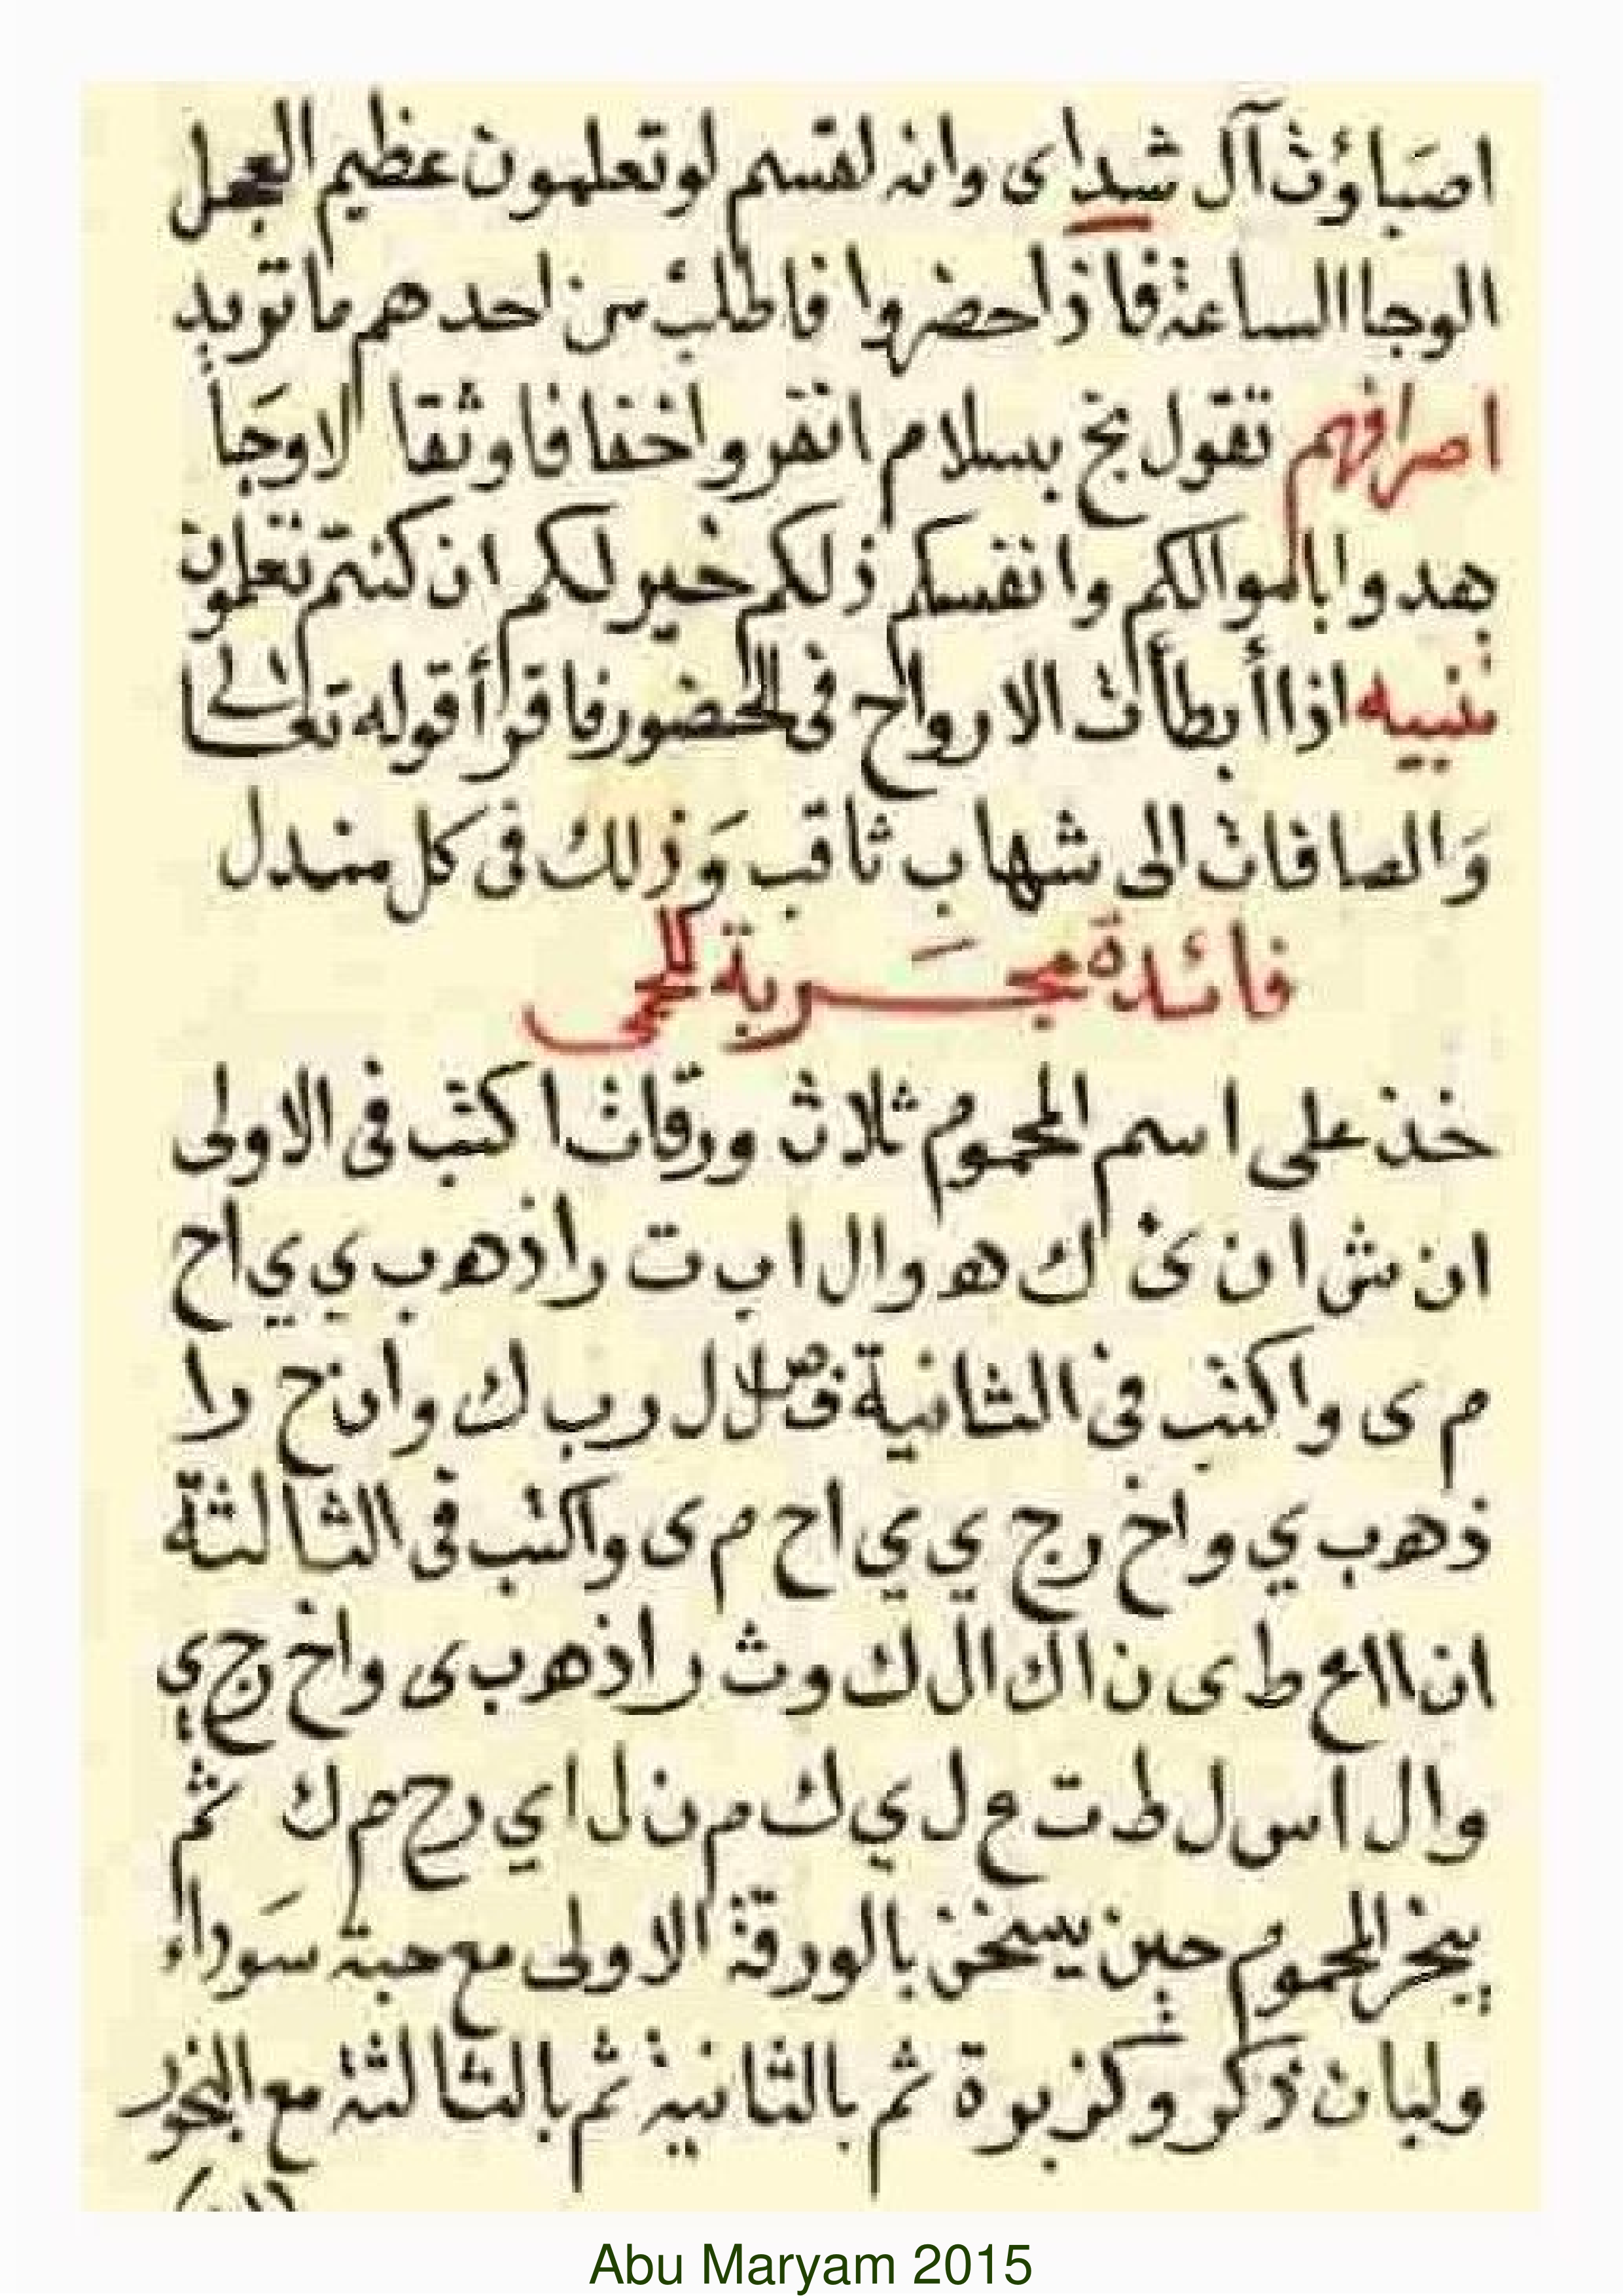 اصَباؤُث آل شداى وانه لقسم لوتعلمون عظيم العجل
الوجا الساعة فاذا حضروا فاطلب من احدهم ماتريد
اصرافهم تقول بخ بسلام انفروا خفافا وثقا لا وجَا
هدوا باموالكم وانفسكم ذلكم خير لكم ان كنتم تعلمون
تنبيه اذا أبطأت الارواح فى الحضور فاقرأ قوله تعالى
وَالصافات الى شهاب ثاقب وَذلك فى كل مندل
فائدة مجَربة للحمى
خذ على اسم المحموم ثلاث ورقات اكتب فى الاولى
ان ش ا ن ئ ك ه و ال ا ب ت ر ا ذ ه ب ي ي ا ح
م ى واكتب فى الثانية ف ص ل ل ر ب ك و ا ن ح ر ا
ذ ه ب ي و ا خ ر ج ي ي ا ح م ى واكتب فى الثالثة
ان ا ا ع ط ى ن ا ك ال ك و ث ر ا ذ ه ب ى و ا خ ر ج ي
و ال ا س ل ط ت ع ل ي ك م ن ل ا ي ر ح م ك ثم
يبخر المحموم حين يسخن بالورقة الاولى مع حبة سَوداء
ولبان ذكر وكزبرة ثم بالثانية ثم بالثالثة مع البخور
Abu Maryam 2015